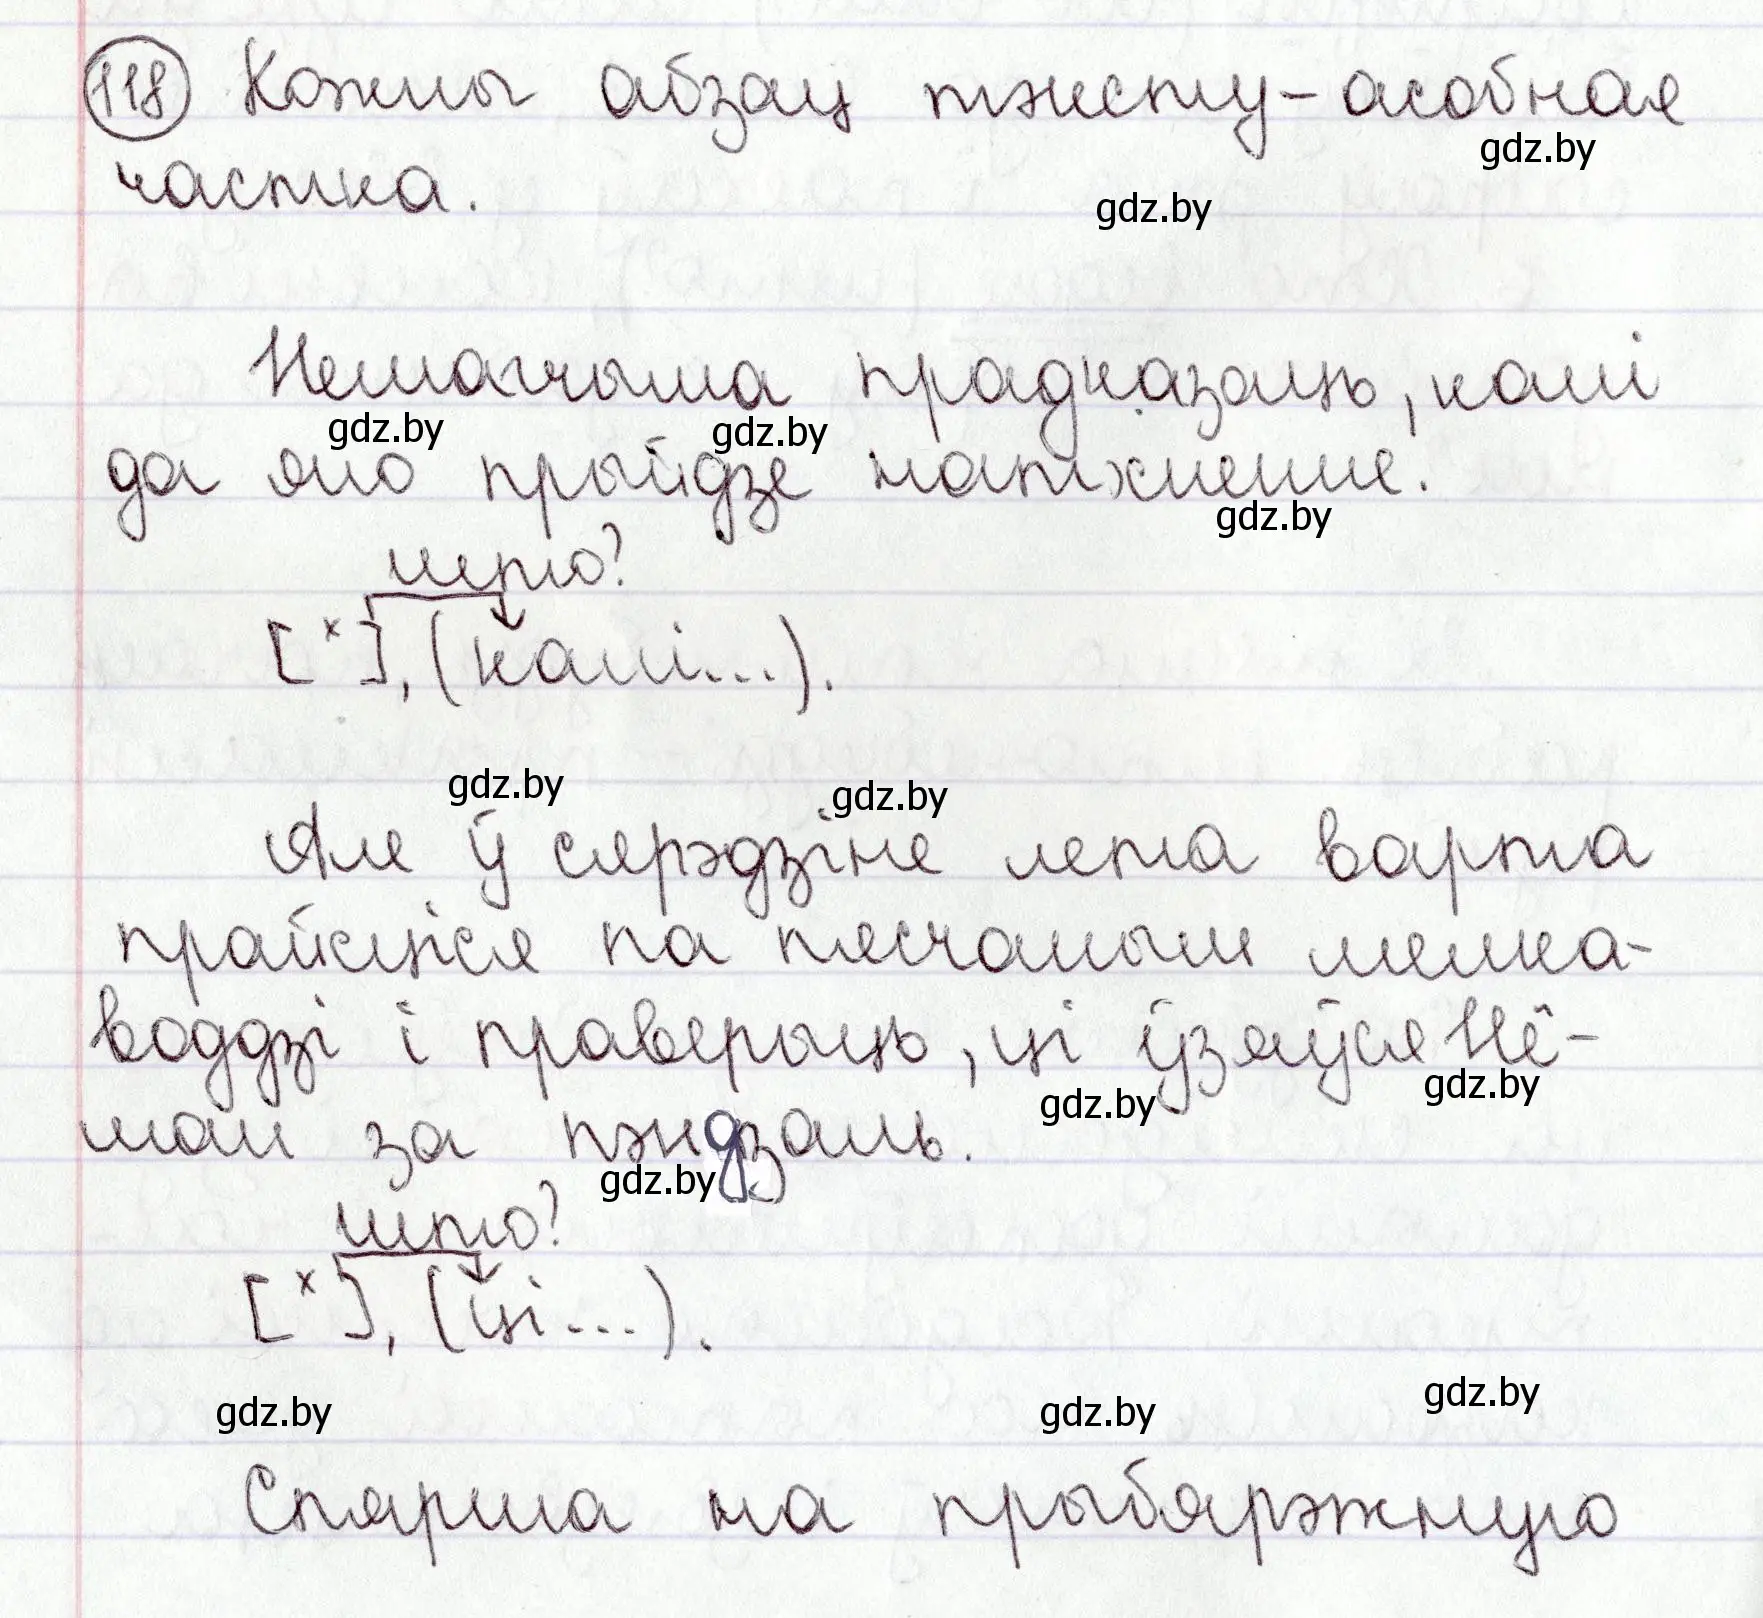 118 Кожны абзац тэксту - асобная
gdz.by
частка.
gdz.by
Немагчыма прадказаць, калі
gdz.by gdz.by
да яго прыйдзе натхненне.
gdz.by
што?
[ˣ], (калі...).
gdz.by gdz.by
Але ў сярэдзіне лета варта
прайсціся па пясчаным мелка-
воддзі і праверыць, ці ўзяўся Нё-
gdz.by gdz.by
ман за пэндзаль.
gdz.by
што?
[ˣ], (ці...).
gdz.by gdz.by gdz.by
Спярша на прыбярэжную